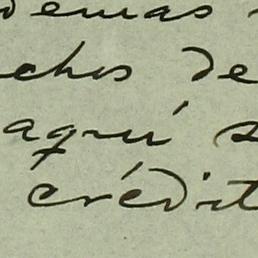 demas
chos de
aquí s
crédit